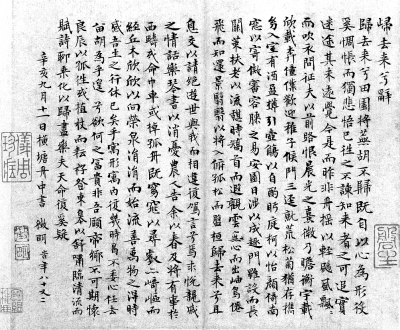 歸去來兮辭
歸去來兮田園將蕪胡不歸既自以心為形役
奚惆悵而獨悲悟已往之不諫知來者之可追實
迷途其未遠覺今是而昨非舟搖搖以輕颺風飄飄
而吹衣問征夫以前路恨晨光之熹微乃瞻衡宇載
欣載奔僮僕歡迎稚子候門三逕就荒松菊猶存攜
幼入室有酒盈樽引壺觴以自酌眄庭柯以怡顏倚南
窗以寄傲審容膝之易安園日涉以成趣門雖設而長
關策扶老以流憩時矯首而遐觀雲無心而出岫鳥倦
飛而知還景翳翳以將入撫孤松而盤桓歸去來兮且
息交以請絕遊世與我而相遺復駕言兮焉求悅親戚
之情話樂琴書以消憂農人告余以春及將有事於
西疇或命巾車或棹孤舟既窈窕以尋壑亦崎嶇而
經丘木欣欣以向榮泉涓涓而始流善萬物之得時
感吾生之行休已矣乎寓形宇內復幾時曷不委心任去
留胡為乎遑遑欲何之富貴非吾願帝鄉不可期懷
良辰以孤往或植杖而耘耔登東皋以舒嘯臨清流而
賦詩聊乘化以歸盡樂夫天命復奚疑
辛亥九月十一日橫塘舟中書 徵明